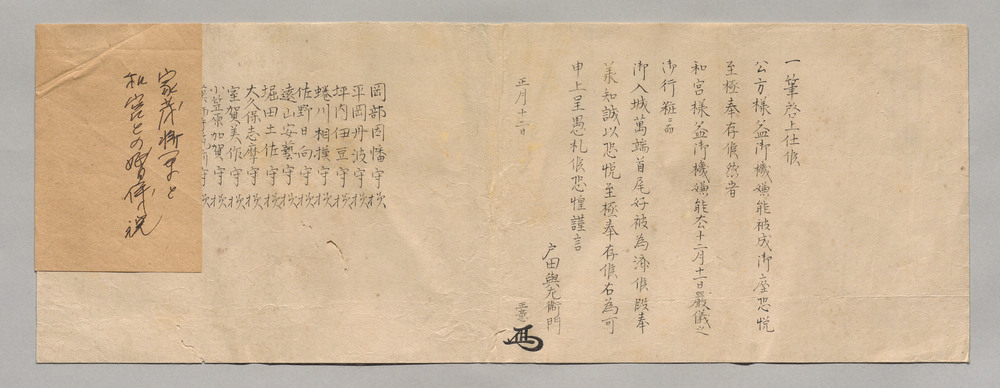 一筆啓上仕候
公方様益御機嫌能被成御座恐悦
至極奉存候然者
和宮様益御機嫌能去十二月十一日嚴儀之
御行粧ニ而
御入城萬端首尾好被為済候段奉
承知誠以恐悦至極奉存候右為可
申上呈愚札候恐惶謹言
戸田與左衛門
正意
正月十二日
岡部因幡守様
平岡丹波守様
坪内伊豆守様
蜷川相模守様
佐野日向守様
遠山安藝守様
堀田土佐守様
大久保志摩守様
室賀美作守様
小笠原加賀守様
家茂将軍と
和宮との婚儀祝